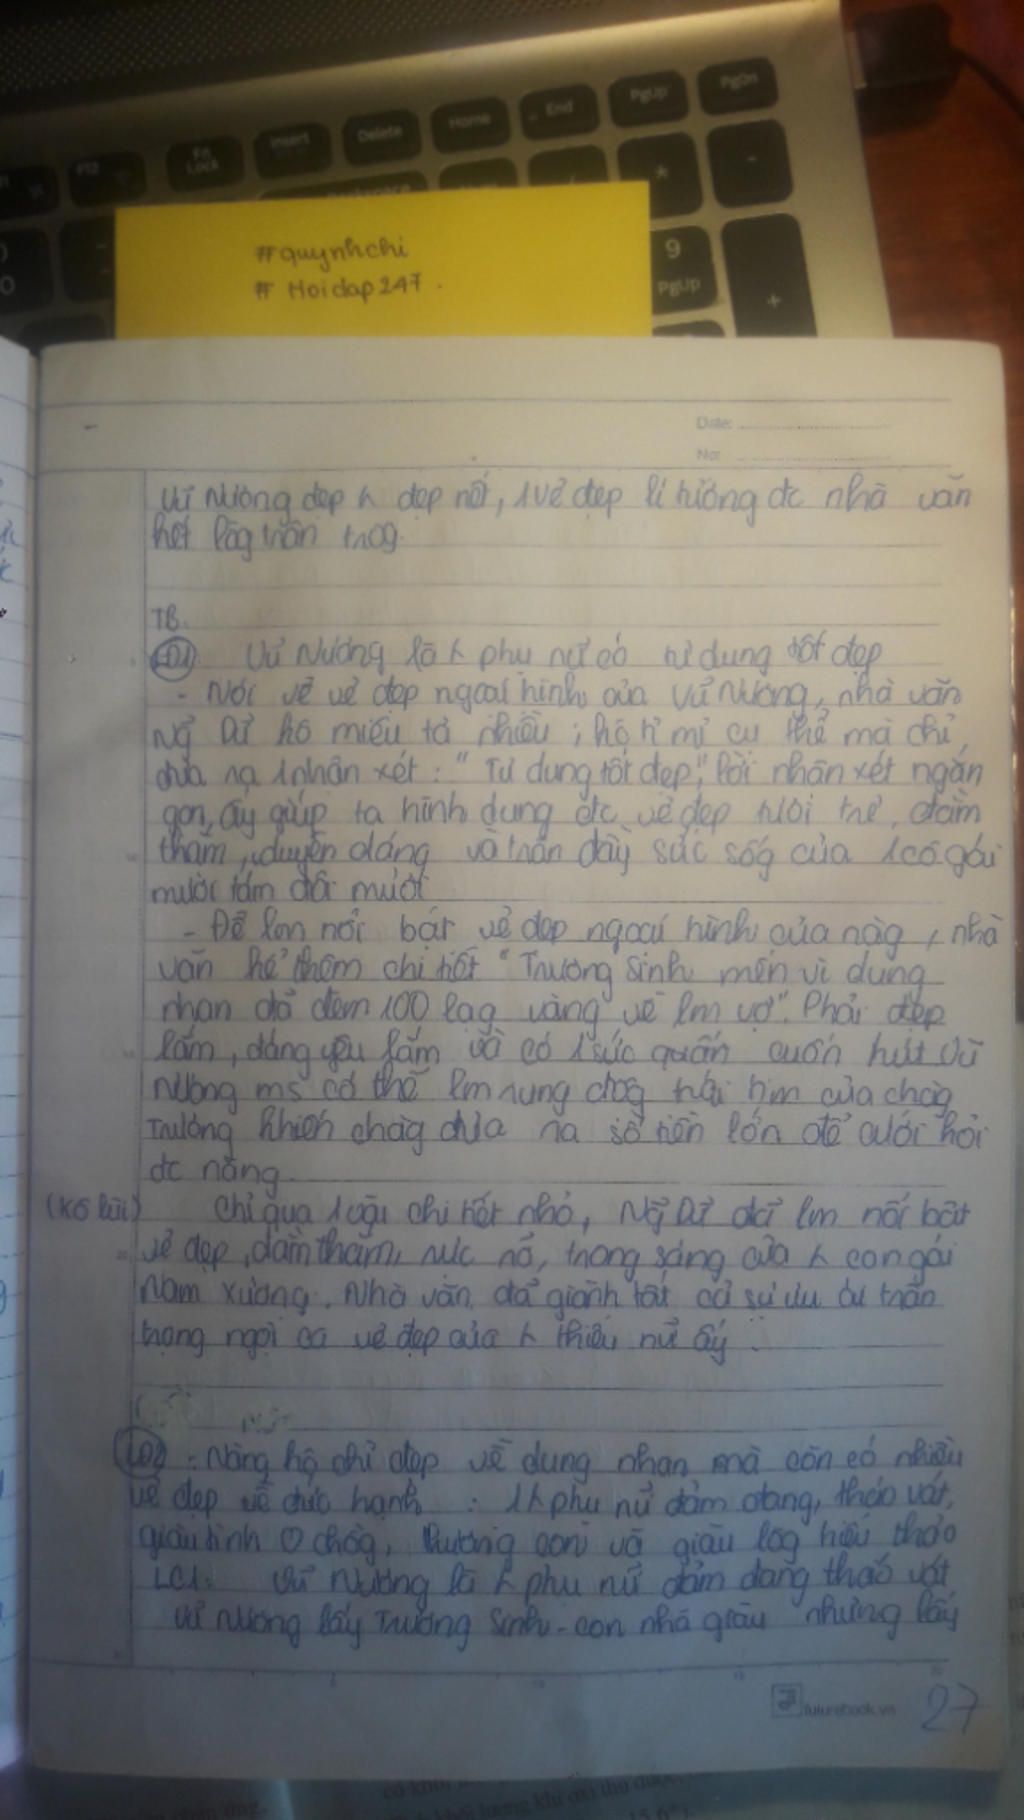 Fn Lock
Insert
Delete
Home
End
PgUp
PgDn
F12
*
-
9
PgUp
+
#quynhchi
#Hoidap247.
Date:
No:
Vũ Nương đẹp k đẹp nết, 1 vẻ đẹp lí tưởng đc nhà văn
hết lòg trân trọg.
TB.
LĐ1 Vũ Nương là k phụ nữ có tư dung tốt đẹp
- Nói về vẻ đẹp ngoại hình của Vũ Nương, nhà văn
Ng~ Dữ hô miêu tả nhiều; hô tỉ mỉ cụ thể mà chỉ
đưa ra 1 nhận xét: "Tư dung tốt đẹp", lời nhận xét ngắn
gọn ấy giúp ta hình dung đc vẻ đẹp tươi trẻ, đằm
thắm, duyên dáng và tràn đầy sức sốg của 1 cô gái
mười tám đôi mươi
- Để lm nổi bật vẻ đẹp ngoại hình của nàg, nhà
văn kể thêm chi tiết "Trương Sinh mến vì dung
nhan đã đem 100 lạg vàng về lm vợ". Phải đẹp
lắm, đáng yêu lắm và có 1 sức quấn cuốn hút Vũ
Nương ms có thể lm rung độg trái tim của chàg
Trương khiến chàg đưa ra số tiền lớn để cưới hỏi
đc nàng.
Chỉ qua 1 vài chi tiết nhỏ, Ng~ Dữ đã lm nổi bật
vẻ đẹp, đằm thắm, nức nở, trong sáng của k con gái
Nam Xương. Nhà văn đã giành tất cả sự ưu ái trân
trọng ngợi ca vẻ đẹp của k thiếu nữ ấy.
LĐ2: Nàng hô chỉ đẹp về dung nhan mà còn có nhiều
vẻ đẹp về đức hạnh: 1 k phụ nữ đảm đang, tháo vát,
giàu tình ở chồg, thương con và giàu lòg hiếu thảo
LC1: Vũ Nương là k phụ nữ đảm đang tháo vát
Vũ Nương lấy Trương Sinh - con nhà giàu nhưng lấy
futurebook.vn
27